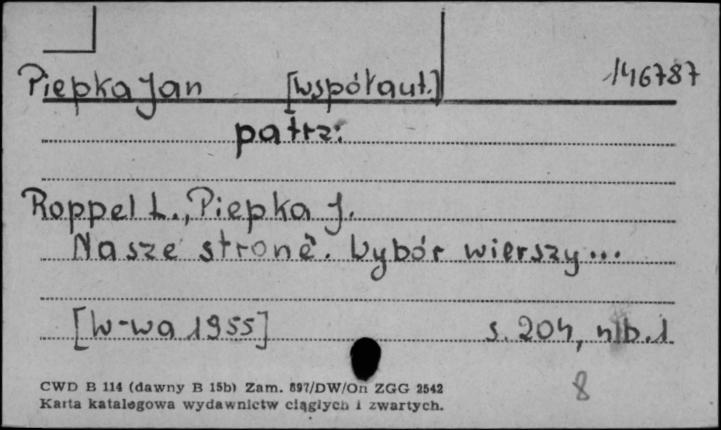 Piepka Jan [współaut.] 146787
patrz:
Roppel L., Piepka J.
Nasze stronë. Wybór wierszy...
[W-wa 1955] s. 204, nlb. 1
8
CWD B 114 (dawny B 15b) Zam. 897/DW/On ZGG 2542
Karta katalogowa wydawnictw ciągłych i zwartych.